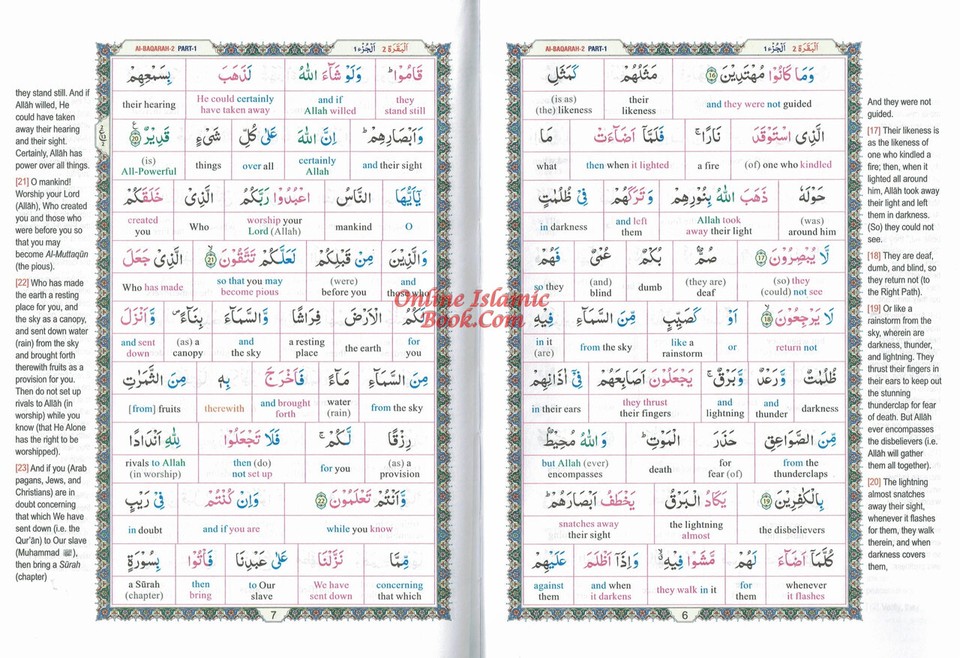 Al-BAQARAH-2 PART-1
اَلْجُزْء ١ اَلْبَقَرَة 2
وَمَا كَانُوْا مُهْتَدِيْنَ ١٦ مَثَلُهُمْ كَمَثَلِ
and they were not guided
their likeness
(is as) (the) likeness
الَّذِى اسْتَوْقَدَ نَارًا ۚ فَلَمَّآ اَضَآءَتْ مَا
(of) one who kindled
a fire
then when it lighted
what
حَوْلَهٗ ذَهَبَ اللّٰهُ بِنُوْرِهِمْ وَتَرَكَهُمْ فِيْ ظُلُمٰتٍ
(was) around him
Allah took away their light
and left them
in darkness
لَّا يُبْصِرُوْنَ ١٧ صُمٌّۢ بُكْمٌ عُمْيٌ فَهُمْ
(so) they (could) not see
(they are) deaf
dumb
(and) blind
so they
لَا يَرْجِعُوْنَ ١٨ اَوْ كَصَيِّبٍ مِّنَ السَّمَآءِ فِيْهِ
return not
or
like a rainstorm
from the sky
in it (are)
ظُلُمٰتٌ وَّرَعْدٌ وَّبَرْقٌ ۚ يَجْعَلُوْنَ اَصَابِعَهُمْ فِيْٓ اٰذَانِهِمْ
darkness
and thunder
and lightning
they thrust their fingers
in their ears
مِّنَ الصَّوَاعِقِ حَذَرَ الْمَوْتِ ؕ وَاللّٰهُ مُحِيْطٌۢ
from the thunderclaps
for fear (of)
death
but Allah (ever) encompasses
بِالْكٰفِرِيْنَ ١٩ يَكَادُ الْبَرْقُ يَخْطَفُ اَبْصَارَهُمْ ؕ
the disbelievers
the lightning almost
snatches away their sight
كُلَّمَآ اَضَآءَ لَهُمْ مَّشَوْا فِيْهِ ۙ وَاِذَآ اَظْلَمَ عَلَيْهِمْ
whenever it flashes
for them
they walk in it
and when it darkens
against them
6
And they were not
guided.
[17] Their likeness is
as the likeness of
one who kindled a
fire; then, when it
lighted all around
him, Allâh took away
their light and left
them in darkness.
(So) they could not
see.
[18] They are deaf,
dumb, and blind, so
they return not (to
the Right Path).
[19] Or like a
rainstorm from the
sky, wherein are
darkness, thunder,
and lightning. They
thrust their fingers in
their ears to keep out
the stunning
thunderclap for fear
of death. But Allâh
ever encompasses
the disbelievers (i.e.
Allâh will gather
them all together).
[20] The lightning
almost snatches
away their sight,
whenever it flashes
for them, they walk
therein, and when
darkness covers
them,
Al-BAQARAH-2 PART-1
اَلْجُزْء ١ اَلْبَقَرَة 2
قَامُوْا ؕ وَلَوْ شَآءَ اللّٰهُ لَذَهَبَ بِسَمْعِهِمْ
they stand still
and if Allah willed
He could certainly have taken away
their hearing
وَاَبْصَارِهِمْ ؕ اِنَّ اللّٰهَ عَلٰى كُلِّ شَيْءٍ قَدِيْرٌ ٢٠
and their sight
certainly Allah
over all
things
(is) All-Powerful
يٰٓاَيُّهَا النَّاسُ اعْبُدُوْا رَبَّكُمُ الَّذِيْ خَلَقَكُمْ
O
mankind
worship your Lord (Allah)
Who
created you
وَالَّذِيْنَ مِنْ قَبْلِكُمْ لَعَلَّكُمْ تَتَّقُوْنَ ٢١ الَّذِيْ جَعَلَ
and those who
(were) before you
so that you may become pious
Who has made
لَكُمُ الْاَرْضَ فِرَاشًا وَّالسَّمَآءَ بِنَآءً ۪ وَّاَنْزَلَ
for you
the earth
a resting place
and the sky
(as) a canopy
and sent down
مِنَ السَّمَآءِ مَآءً فَاَخْرَجَ بِهٖ مِنَ الثَّمَرٰتِ
from the sky
water (rain)
and brought forth
therewith
[from] fruits
رِزْقًا لَّكُمْ ۚ فَلَا تَجْعَلُوْا لِلّٰهِ اَنْدَادًا
(as) a provision
for you
then (do) not set up
rivals to Allah (in worship)
وَّاَنْتُمْ تَعْلَمُوْنَ ٢٢ وَاِنْ كُنْتُمْ فِيْ رَيْبٍ
while you know
and if you are
in doubt
مِّمَّا نَزَّلْنَا عَلٰى عَبْدِنَا فَاْتُوْا بِسُوْرَةٍ
concerning that which
We have sent down
to Our slave
then bring
a Sûrah (chapter)
7
they stand still. And if
Allâh willed, He
could have taken
away their hearing
and their sight.
Certainly, Allâh has
power over all things.
[21] O mankind!
Worship your Lord
(Allâh), Who created
you and those who
were before you so
that you may
become Al-Muttaqûn
(the pious).
[22] Who has made
the earth a resting
place for you, and
the sky as a canopy,
and sent down water
(rain) from the sky
and brought forth
therewith fruits as a
provision for you.
Then do not set up
rivals to Allâh (in
worship) while you
know (that He Alone
has the right to be
worshipped).
[23] And if you (Arab
pagans, Jews, and
Christians) are in
doubt concerning
that which We have
sent down (i.e. the
Qur'ân) to Our slave
(Muhammad ﷺ),
then bring a Sûrah
(chapter)
Online Islamic
Book.Com